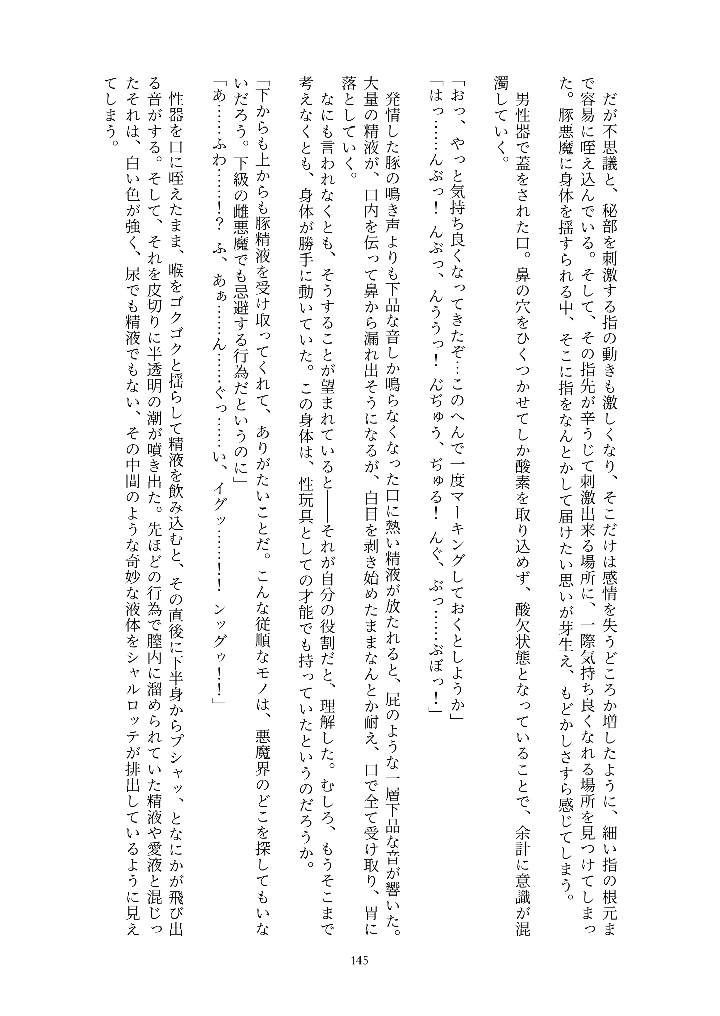 だが不思議と、秘部を刺激する指の動きも激しくなり、そこだけは感情を失うどころか増したように、細い指の根元ま
で容易に咥え込んでいる。そして、その指先が辛うじて刺激出来る場所に、一際気持ち良くなれる場所を見つけてしまっ
た。豚悪魔に身体を揺すられる中、そこに指をなんとかして届けたい思いが芽生え、もどかしさすら感じてしまう。
男性器で蓋をされた口。鼻の穴をひくつかせてしか酸素を取り込めず、酸欠状態となっていることで、余計に意識が混
濁していく。
「おっ、やっと気持ち良くなってきたぞ…このへんで一度マーキングしておくとしようか」
「はっ……んぶっ！ んぶっ、んううっ！ んぢゅう、ぢゅる！ んぐ、ぶっ……ぶぼっ！」
発情した豚の鳴き声よりも下品な音しか鳴らなくなった口に熱い精液が放たれると、屁のような一層下品な音が響いた。
大量の精液が、口内を伝って鼻から漏れ出そうになるが、白目を剥き始めたままなんとか耐え、口で全て受け取り、胃に
落としていく。
なにも言われなくとも、そうすることが望まれていると――それが自分の役割だと、理解した。むしろ、もうそこまで
考えなくとも、身体が勝手に動いていた。この身体は、性玩具としての才能でも持っていたというのだろうか。
「下からも上からも豚精液を受け取ってくれて、ありがたいことだ。こんな従順なモノは、悪魔界のどこを探してもいな
いだろう。下級の雌悪魔でも忌避する行為だというのに」
「あ……ふわ……！？ ふ、あぁ……ん……ぐっ……い、イグッ……！！ ンッグゥ！！」
性器を口に咥えたまま、喉をゴクゴクと揺らして精液を飲み込むと、その直後に下半身からプシャッ、となにかが飛び出
る音がする。そして、それを皮切りに半透明の潮が噴き出た。先ほどの行為で膣内に溜められていた精液や愛液と混じっ
たそれは、白い色が強く、尿でも精液でもない、その中間のような奇妙な液体をシャルロッテが排出しているように見え
てしまう。
145